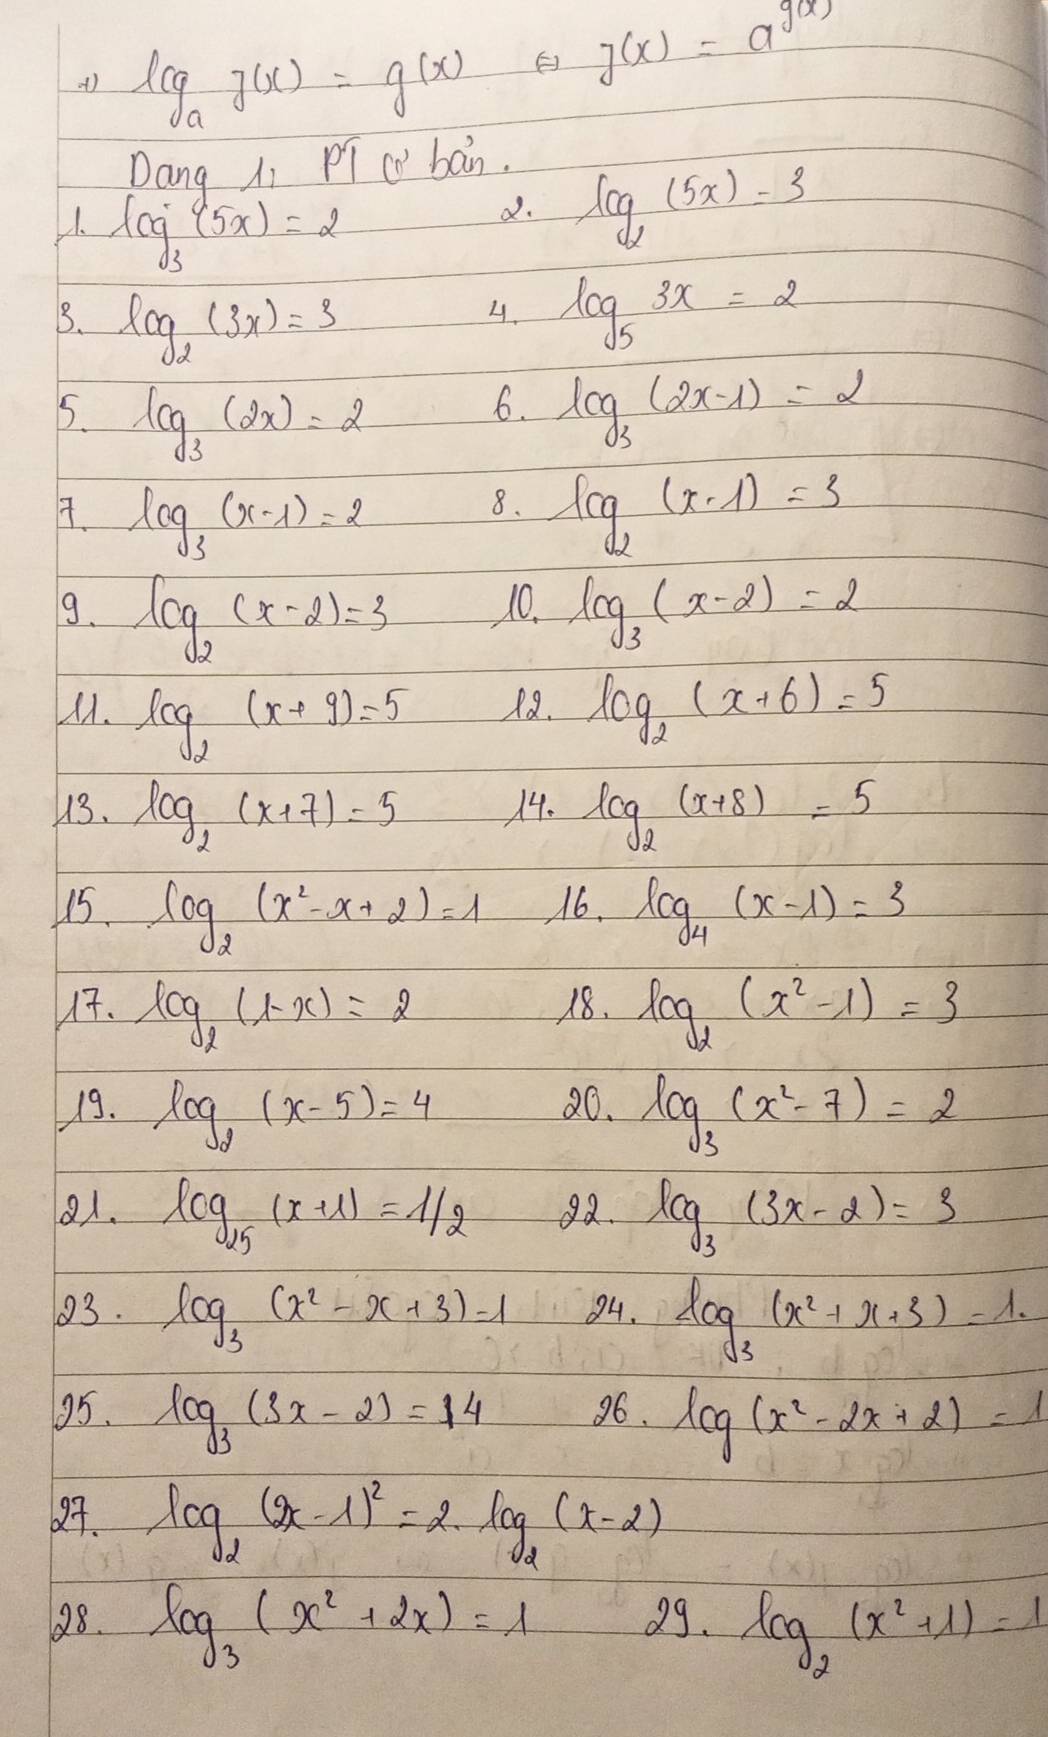 +) log_a f(x) = g(x) ⇔ f(x) = a^{g(x)}
Dạng 1: PT cơ bản.
1. log_3 (5x) = 2 2. log_2 (5x) = 3
3. log_2 (3x) = 3 4. log_5 3x = 2
5. log_3 (2x) = 2 6. log_3 (2x-1) = 2
7. log_3 (x-1) = 2 8. log_2 (x-1) = 3
9. log_2 (x-2) = 3 10. log_3 (x-2) = 2
11. log_2 (x+9) = 5 12. log_2 (x+6) = 5
13. log_2 (x+7) = 5 14. log_2 (x+8) = 5
15. log_2 (x²-x+2) = 1 16. log_4 (x-1) = 3
17. log_2 (1-x) = 2 18. log_2 (x²-1) = 3
19. log_2 (x-5) = 4 20. log_3 (x²-7) = 2
21. log_25 (x+1) = 1/2 22. log_3 (3x-2) = 3
23. log_3 (x²-x+3) = 1 24. log_3 (x²+x+3) = 1.
25. log_3 (3x-2) = 4 26. log (x²-2x+2) = 1
27. log_2 (2x-1)² = 2. log_2 (x-2)
28. log_3 (x²+2x) = 1 29. log_2 (x²+1) = 1